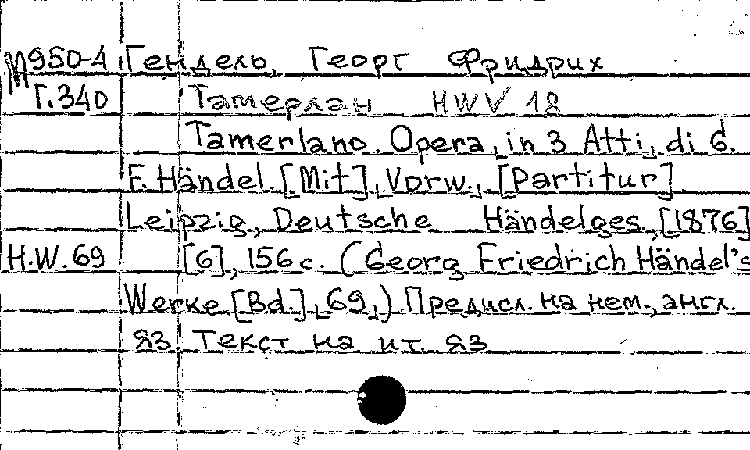 М950-4 Гендель, Георг Фридрих
Г.340 Тамерлан HWV 18
Tamerlano. Opera, in 3 Atti, di G.
F. Händel. [Mit], Vorw., [Partitur]
Leipzig, Deutsche Händelges, [1876]
H.W.69 [6], 156 c. (Georg Friedrich Händel's
Werke [Bd.], 69,) Предисл. на нем., англ.
яз. Текст на ит. яз